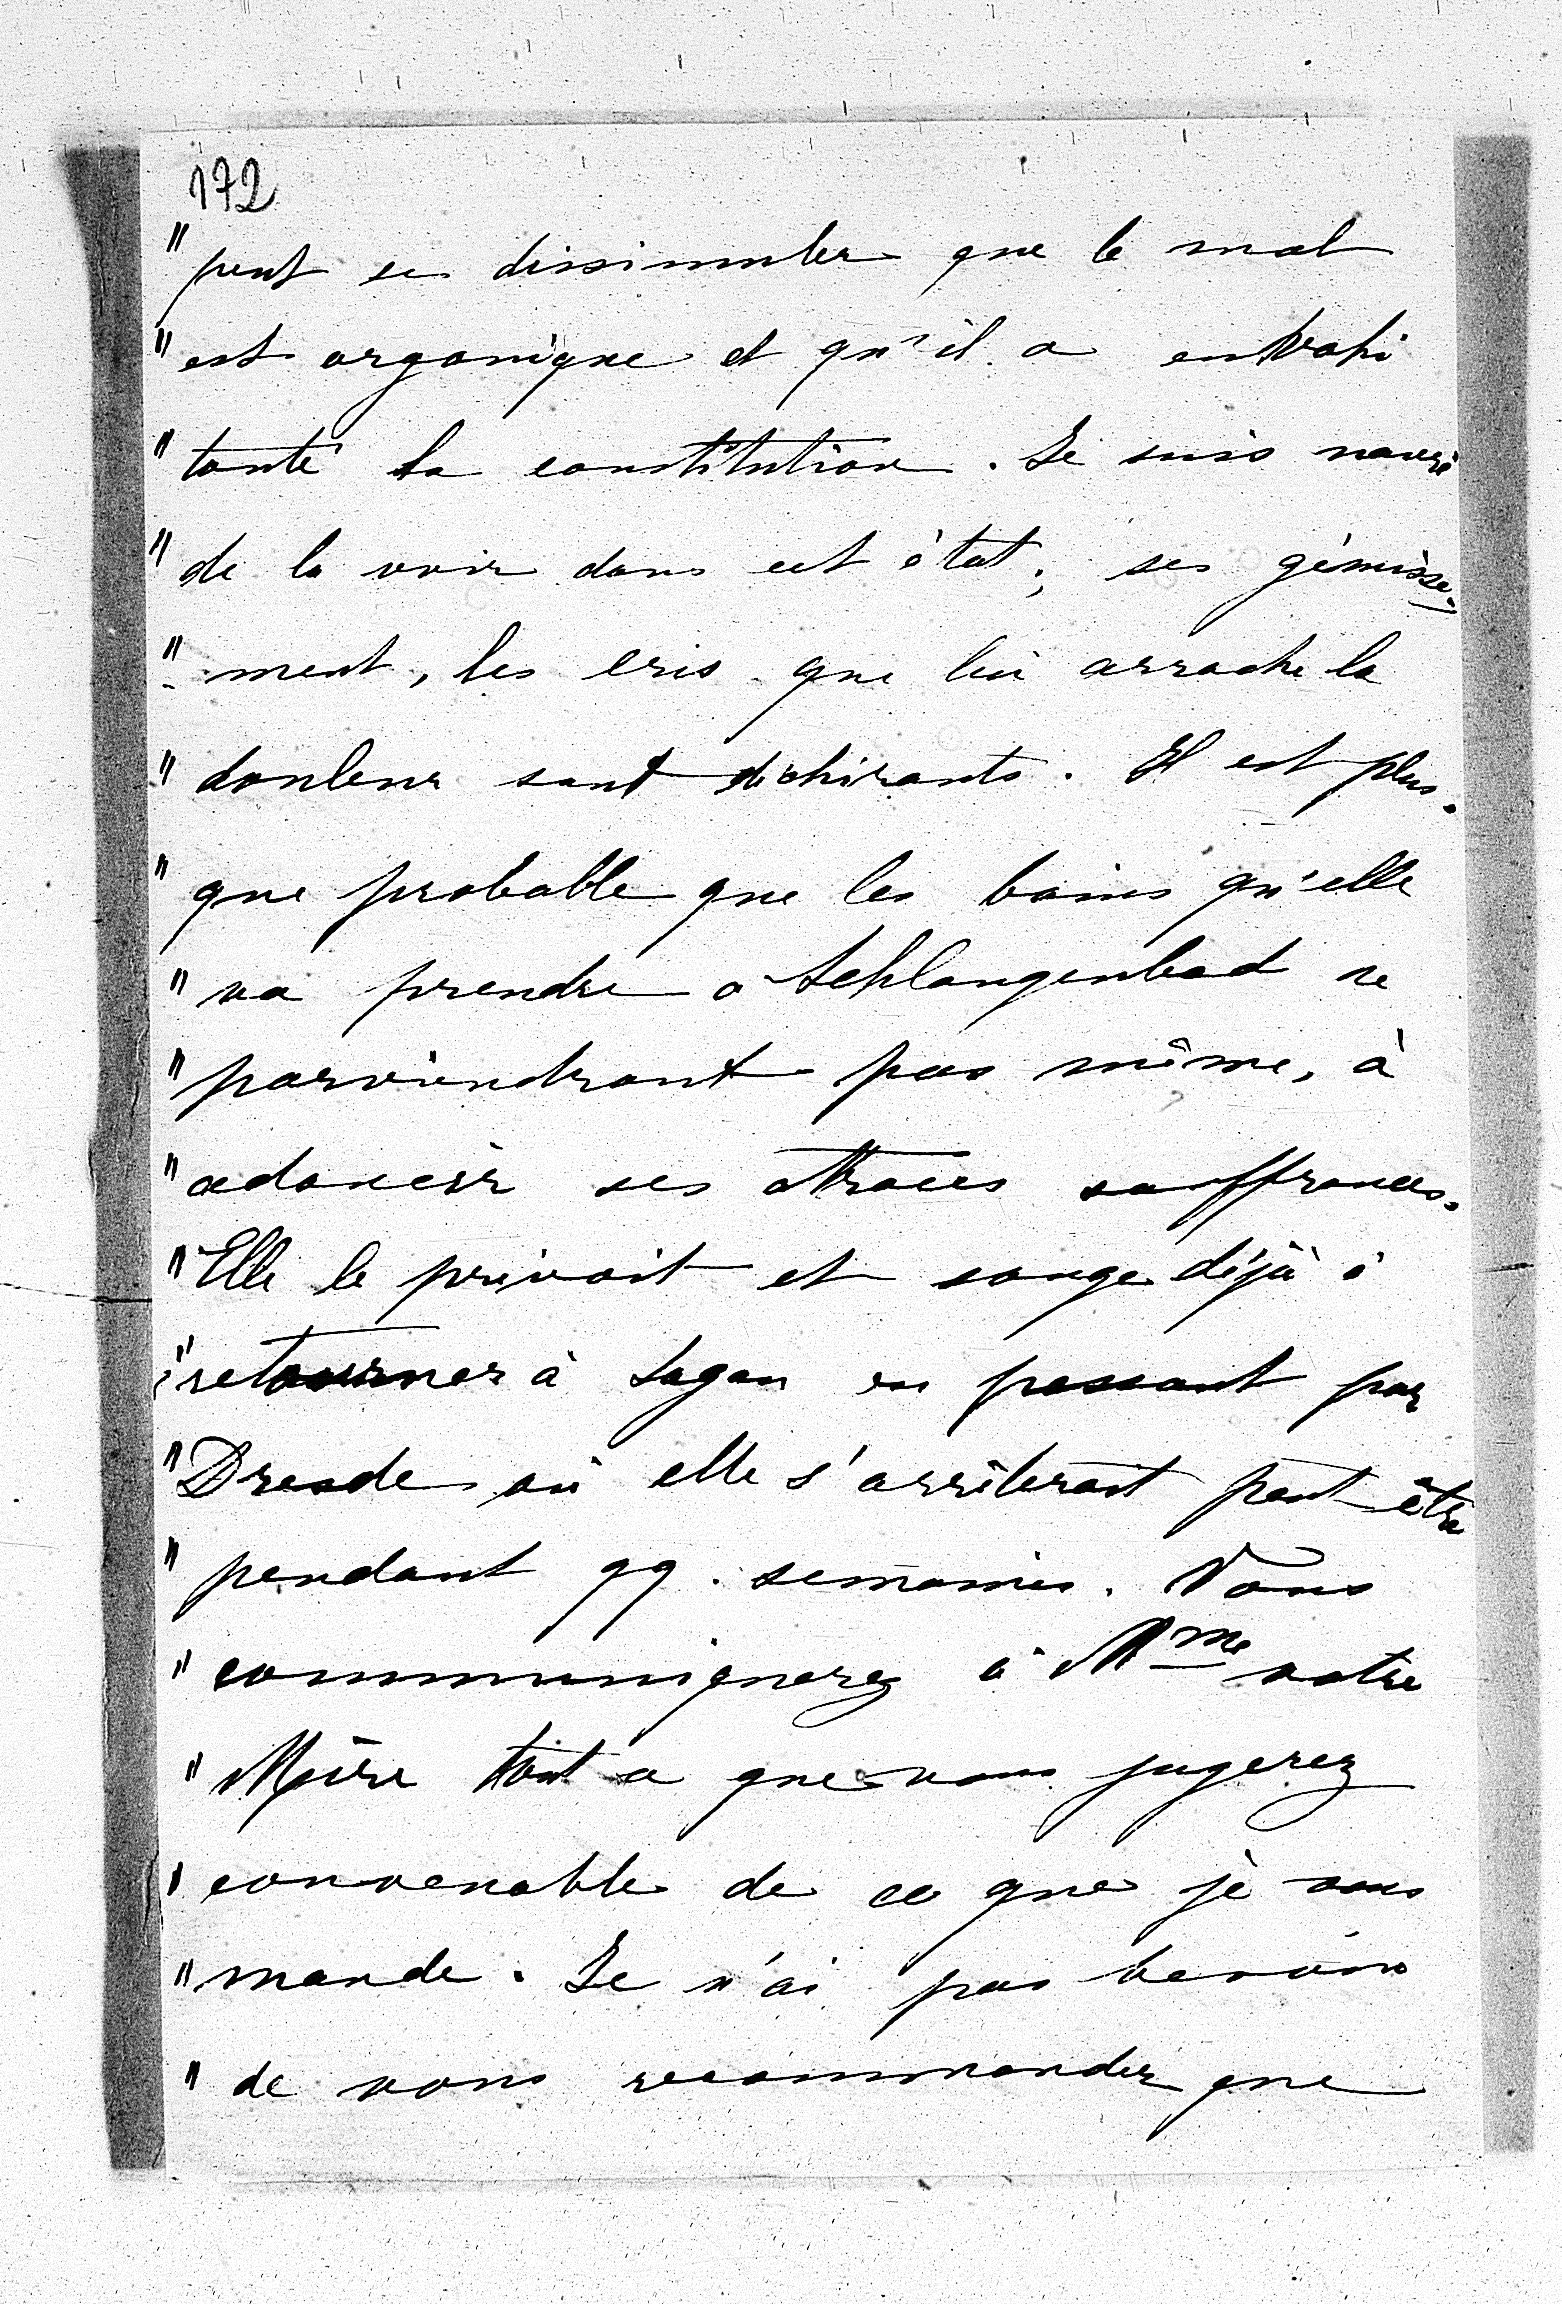 172
" peut se dissimuler que le mal
" est organique et qu'il a envahi
" toute la constitution. Je suis navré
" de la voir dans cet état; ses gémisse-
" ment, les cris que lui arrache la
" douleur sont déchirants. Il est plus.
" que probable que les bains qu'elle
" va prendre à Schlangenbad ne
" parviendront pas même, à
" adoucir ses atroces souffrances.
" Elle le prévoit et songe déjà à
" retourner à Sagan en passant par
" Dresde où elle s'arrêterait peut être
" pendant qq. semaines. Vous
" communiquerez à Mme votre
" Mère tout ce que vous jugerez
" convenable de ce que je vous
" mande. Je n'ai pas besoin
" de vous recommander que